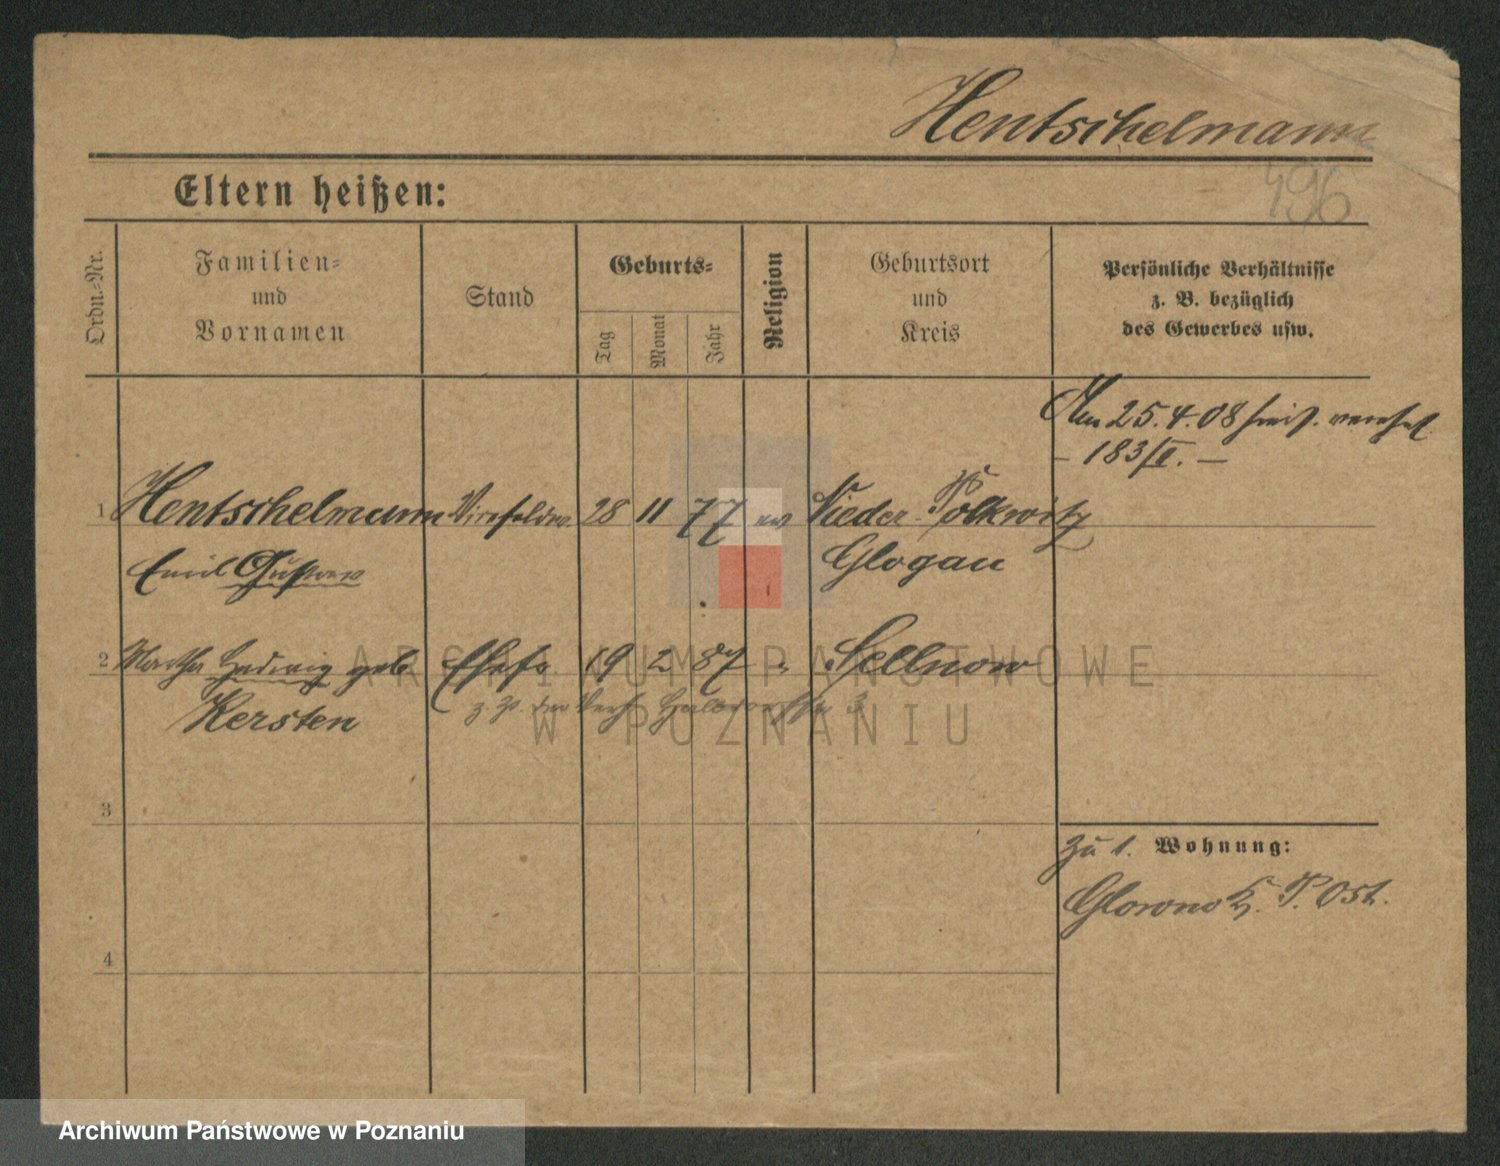 Hentschelmann
496
Eltern heißen:
Ordn.-Nr.
Familien-
und
Vornamen
Stand
Geburts-
Tag
Monat
Jahr
Religion
Geburtsort
und
Kreis
Persönliche Verhältnisse
z. B. bezüglich
des Gewerbes usw.
Am 25.4.08
- 183/II. -
1 Hentschelmann 28 11 77 ev Nieder-Polkwitz
Emil Gustav Glogau
2 Martha Hedwig geb. Ehefr 19 2 87 " Sellnow
Kersten
3
4
zu 1. Wohnung:
Glowno K. P. Ost.
ARCHIWUM PAŃSTWOWE
W POZNANIU
Archiwum Państwowe w Poznaniu